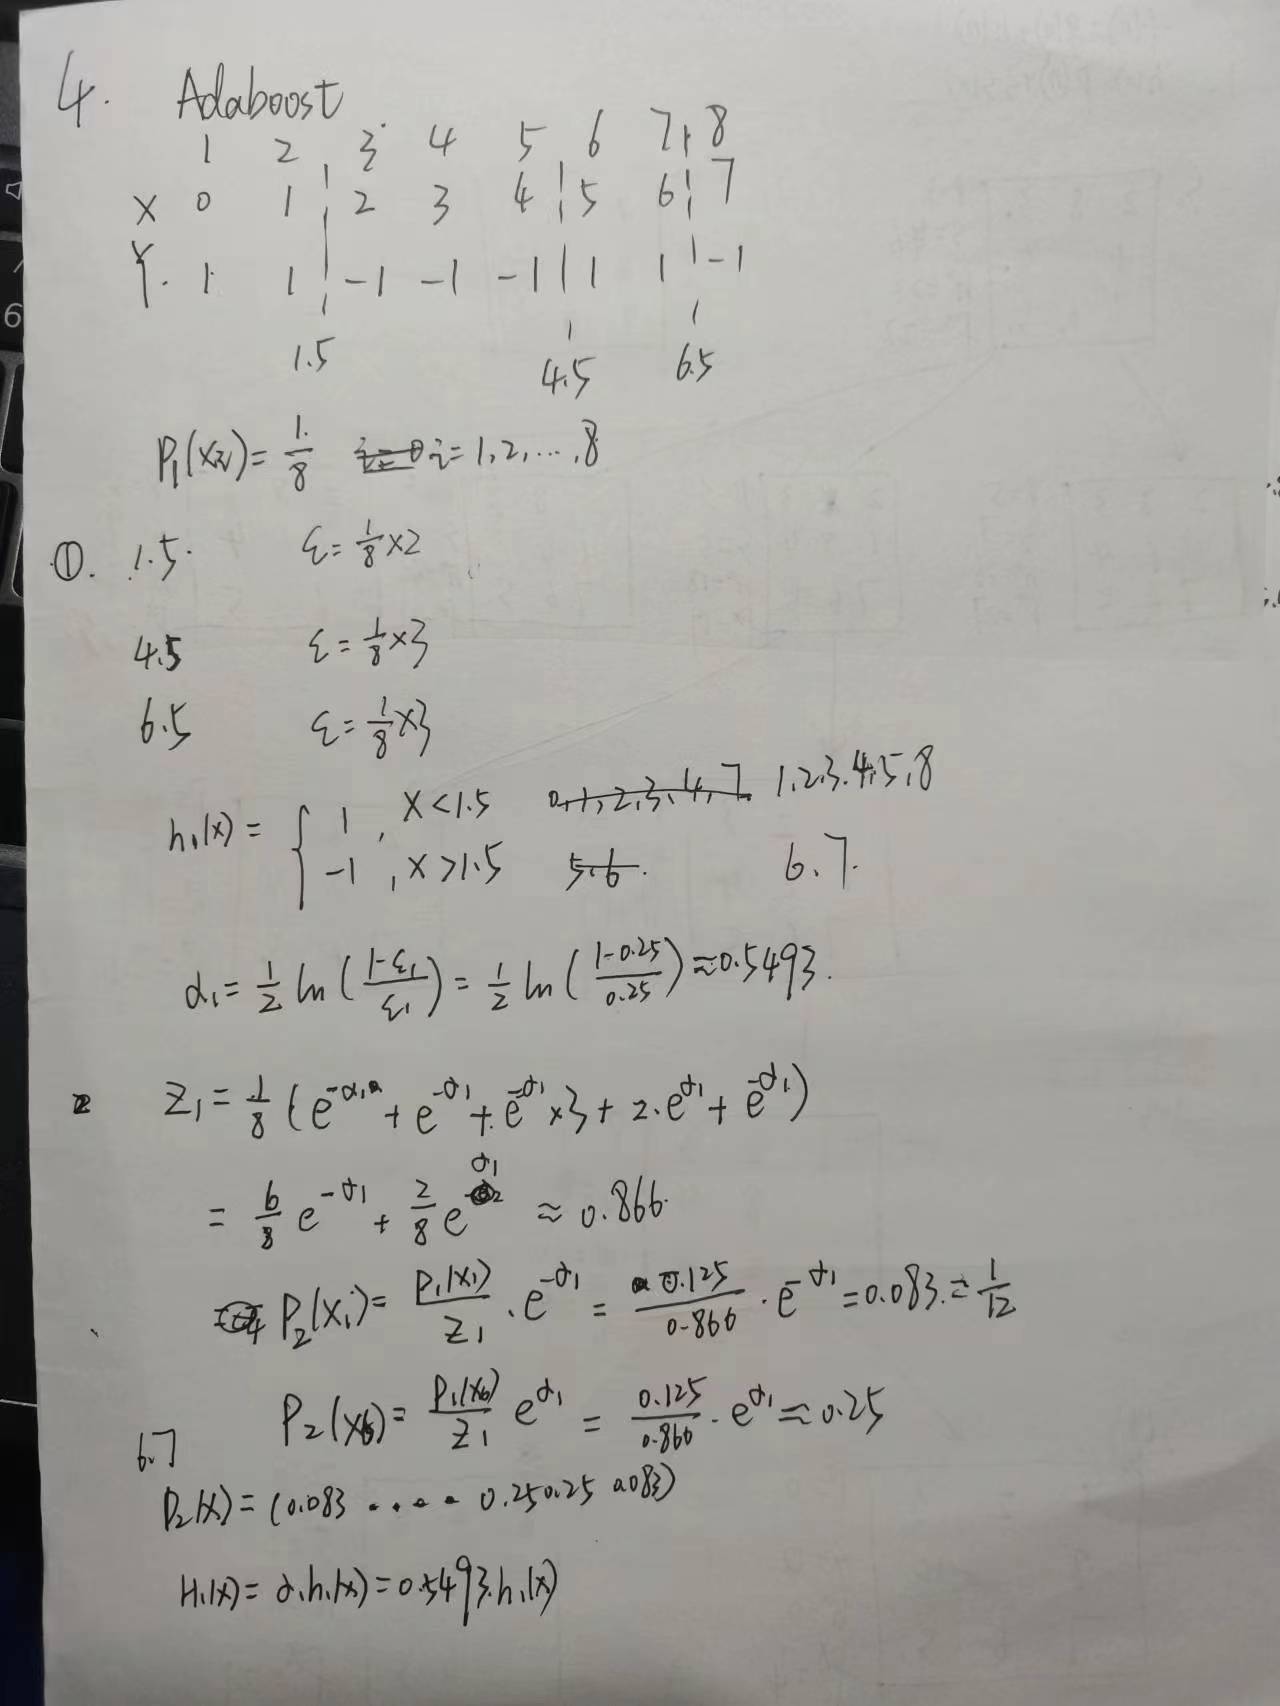 4. Adaboost
1 2 3 4 5 6 7 8
X 0 1 2 3 4 5 6 7
Y. 1 1 -1 -1 -1 1 1 -1
1.5 4.5 6.5
P₁(xᵢ) = 1/8 i = 1, 2, ..., 8
①. 1.5. ε = 1/8 × 2
4.5 ε = 1/8 × 3
6.5 ε = 1/8 × 3
h₁(x) = { 1, x < 1.5 0, 1, 2, 3, 4, 7 1, 2, 3, 4, 5, 8
-1, x > 1.5 5, 6. 6. 7.
α₁ = 1/2 ln((1-ε₁)/ε₁) = 1/2 ln((1-0.25)/0.25) ≈ 0.5493.
Z₁ = 1/8 (e^(-α₁) + e^(-α₁) + e^(-α₁) × 3 + 2·e^(α₁) + e^(-α₁))
= 6/8 e^(-α₁) + 2/8 e^(α₁) ≈ 0.866.
P₂(x₁) = P₁(x₁)/Z₁ · e^(-α₁) = 0.125/0.866 · e^(-α₁) = 0.083. = 1/12
P₂(x₆) = P₁(x₆)/Z₁ e^(α₁) = 0.125/0.866 · e^(α₁) ≈ 0.25
6.7
P₂(x) = (0.083 .... 0.25 0.25 0.083)
H₁(x) = α₁h₁(x) = 0.5493.h₁(x)